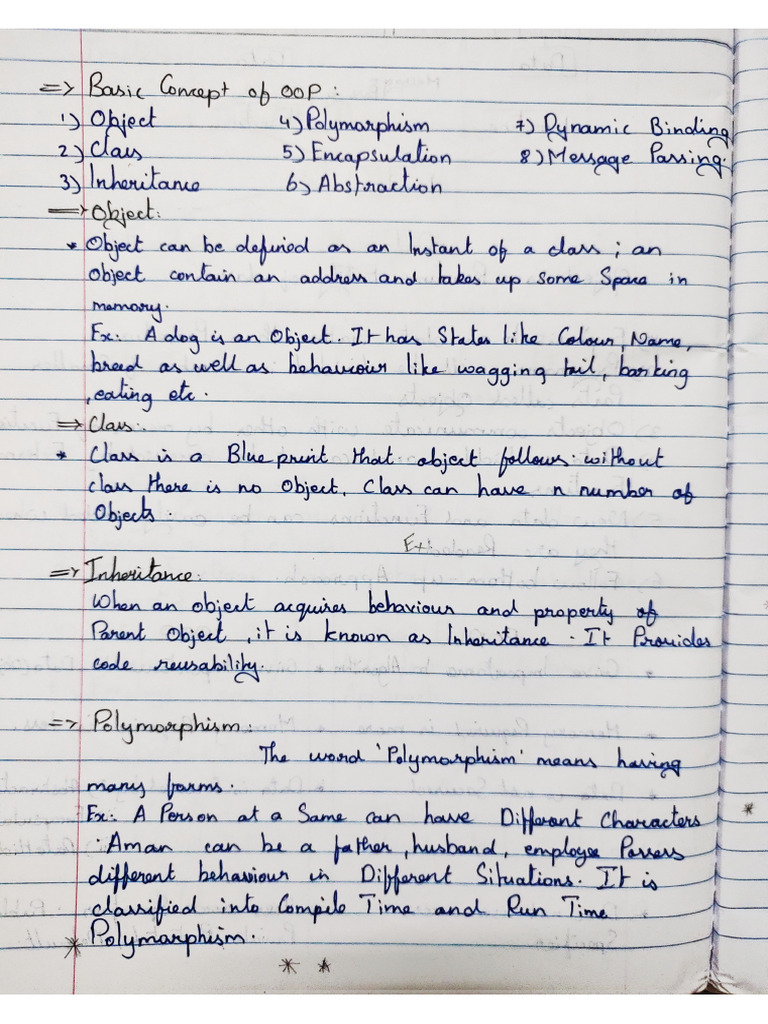 => Basic Concept of OOP :
1) Object 4) Polymorphism 7) Dynamic Binding
2) Class 5) Encapsulation 8) Message Passing.
3) Inheritance 6) Abstraction
=> Object:
* Object can be defined as an Instant of a class ; an
object contain an address and takes up some Space in
memory.
Ex: A dog is an Object. It has States like Colour, Name,
bread as well as behaviour like wagging tail, barking
, eating etc.
=> Class:
* Class is a Blue print that object follows. without
class there is no Object. Class can have n number of
Objects.
Ex:
=> Inheritance:
When an object acquires behaviour and property of
Parent Object , it is known as Inheritance. It Provides
code reusability.
=> Polymorphism:
The word 'Polymorphism' means having
many forms.
Ex: A Person at a Same can have Different Characters
: Aman can be a father, husband, employee Possess
different behaviour in Different Situations. It is
classified into Compile Time and Run Time
* Polymorphism.
* *